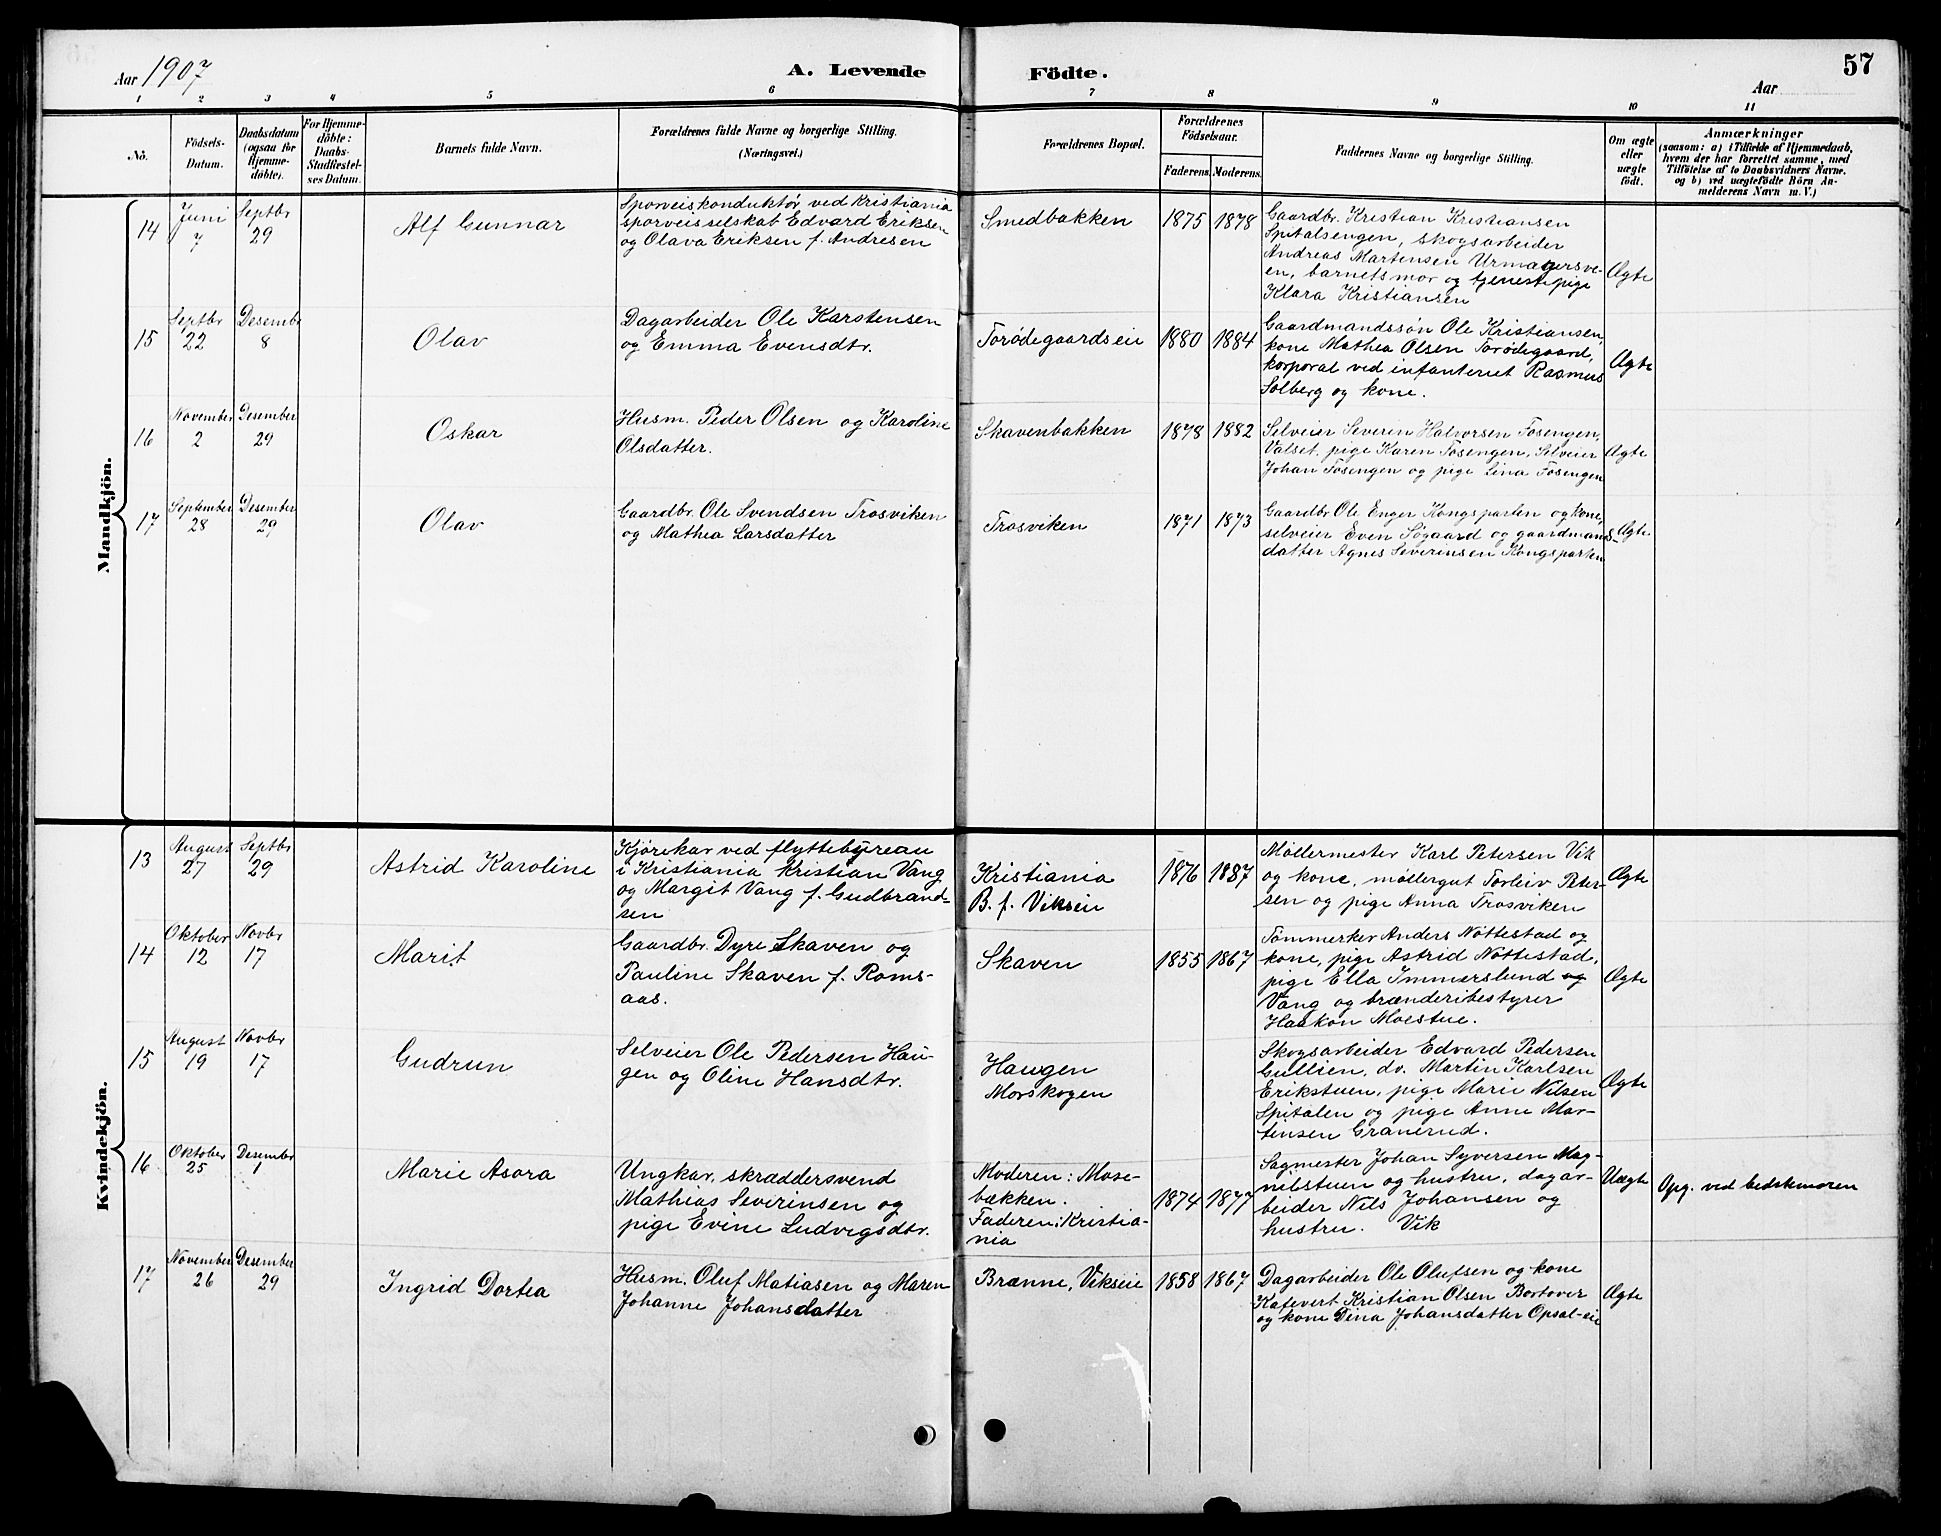 Aar 1907
A. Levende Födte.
57
Aar
1 2 3 4 5 6 7 8 9 10 11
No.
Födsels-
Datum.
Daabsdatum
(ogsaa for
Hjemme-
döbte).
For Hjemme-
döbte:
Daabs-
Stadfæstel-
ses Datum.
Barnets fulde Navn.
Forældrenes fulde Navne og borgerlige Stilling.
(Næringsvei.)
Forældrenes Bopæl.
Forældrenes
Födselsaar.
Faderens. Moderens.
Faddernes Navne og borgerlige Stilling.
Om ægte
eller
uægte
födt.
Anmærkninger
(saasom: a) i Tilfælde af Hjemmedaab,
hvem der har forrettet samme, med
Tilföielse af to Daabsvidners Navne.
og b) ved uægtefödte Börn An-
melderens Navn m. V.)
Mandkjön.
14
Juni
7
Septbr
29
Alf Gunnar
Sporveiskonduktör ved Kristiania
sporveisselskab Edvard Eriksen
og Olava Eriksen f. Andresen
Smedbakken
1875 1878
Gaardbr. Kristian Kristiansen
Spitalsengen, skogsarbeider
Andreas Martensen Urmagersve-
en, barnets mor og tjenestepige
Klara Kristiansen
Ægte
15
Septbr
22
Desembr
8
Olav
Dagarbeider Ole Karstensen
og Emma Evensdtr.
Torödegaardseie
1880 1884
Gaardmandssön Ole Kristiansen,
kone Mathea Olsen Torödegaard,
korporal ved infanteriet Rasmus
Solberg og kone.
Ægte
16
November
2
Desember
29
Oskar
Husm. Peder Olsen og Karoline
Olsdatter.
Skavenbakken
1878 1882
Selveier Severin Halvorsen Fosengen,
Valset, pige Karen Fosengen, Selveier
Johan Fosengen og pige Lina Fosengen
Ægte
17
September
28
Desember
29
Olav
Gaardbr. Ole Svendsen Trosviken
og Mathea Larsdatter
Trosviken
1871 1873
Gaardbr. Ole Enger Kongsparten og kone,
selveier Even Sögaard og gaardmands-
datter Agnes Severinsen Kongsparten
Ægte.
Kvindekjön.
13
August
27
Septbr
29
Astrid Karoline
Kjörekar ved flyttebyreau
i Kristiania Kristian Vang
og Margit Vang f. Gudbrand-
sen
Kristiania
B. f. Vikseie
1876 1887
Möllermester Karl Petersen Vik
og kone, möllergut Torleiv Peter-
sen og pige Anna Trosviken
Ægte
14
Oktober
12
Novbr
17
Marit
Gaardbr. Dyre Skaven og
Pauline Skaven f. Roms-
aas.
Skaven
1855 1867
Tömmerker Anders Nöttestad og
kone, pige Astrid Nöttestad,
pige Ella Immerslund og
Vang og brænderibestyrer
Haakon Moestue.
Ægte
15
August
19
Novbr
17
Gudrun
Selveier Ole Pedersen Hau-
gen og Oline Hansdtr.
Haugen
Morskogen
Skogsarbeider Edvard Pedersen
Gullien, do. Martin Karlsen
Erikstuen, pige Marie Nilsen
Spitalen og pige Anne Mar-
tinsen Granerud.
Ægte
16
Oktober
25
Desember
1
Marie Asora
Ungkar, skræddersvend
Mathias Severinsen og
pige Evine Ludvigsdtr.
Moderen: Mose-
bækken.
Faderen: Kristia-
nia
1874 1877
Sagmester Johan Syversen Mag-
nilstuen og hustru, dagar-
beider Nils Johansen og
hustru. Vik
Uægte
Opg. ved bedstemoren
17
November
26
Desember
29
Ingrid Dortea
Husm. Oluf Matiasen og Maren
Johanne Johansdatter
Brænne, Vikseie
1858 1867
Dagarbeider Ole Olufsen og kone
Katevert Kristian Olsen Bortover
og kone Dina Johansdatter Opsal-eie
Ægte